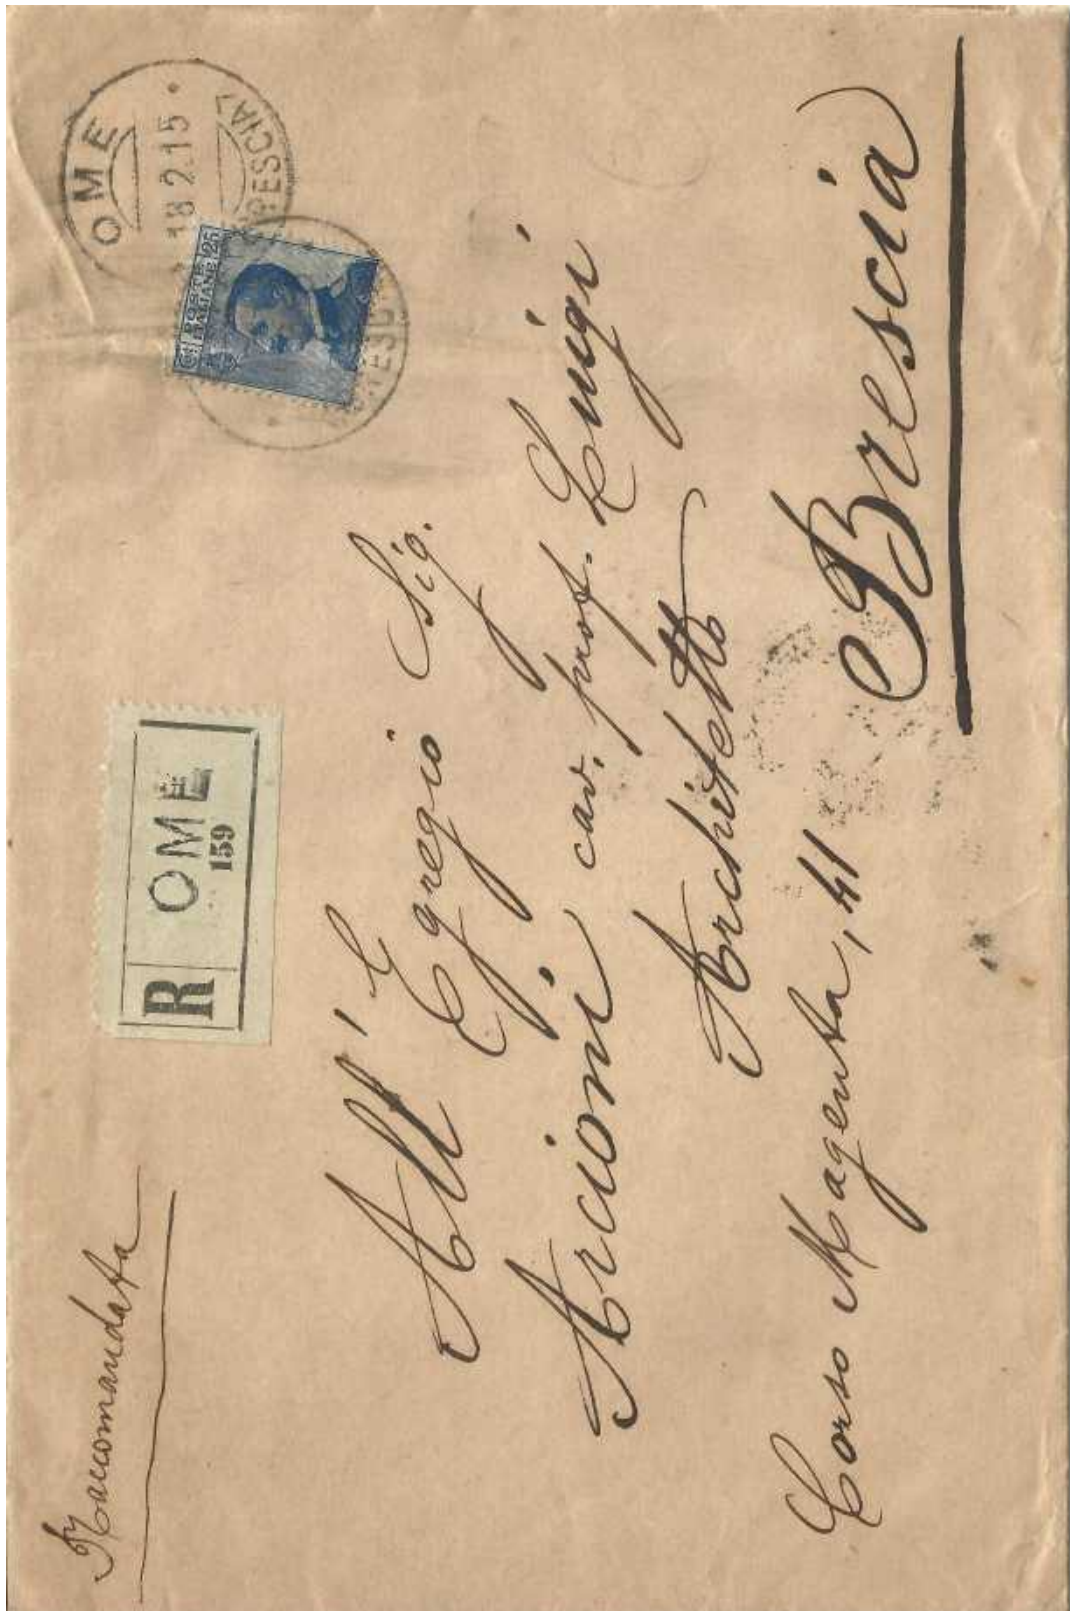 Raccomandata
R OME
159
OME
18 2.15
BRESCIA
POSTE
ITALIANE 25
All' Egregio Sig.
Arcioni cav. prof. Luigi
Architetto
Corso Magenta, 41 Brescia